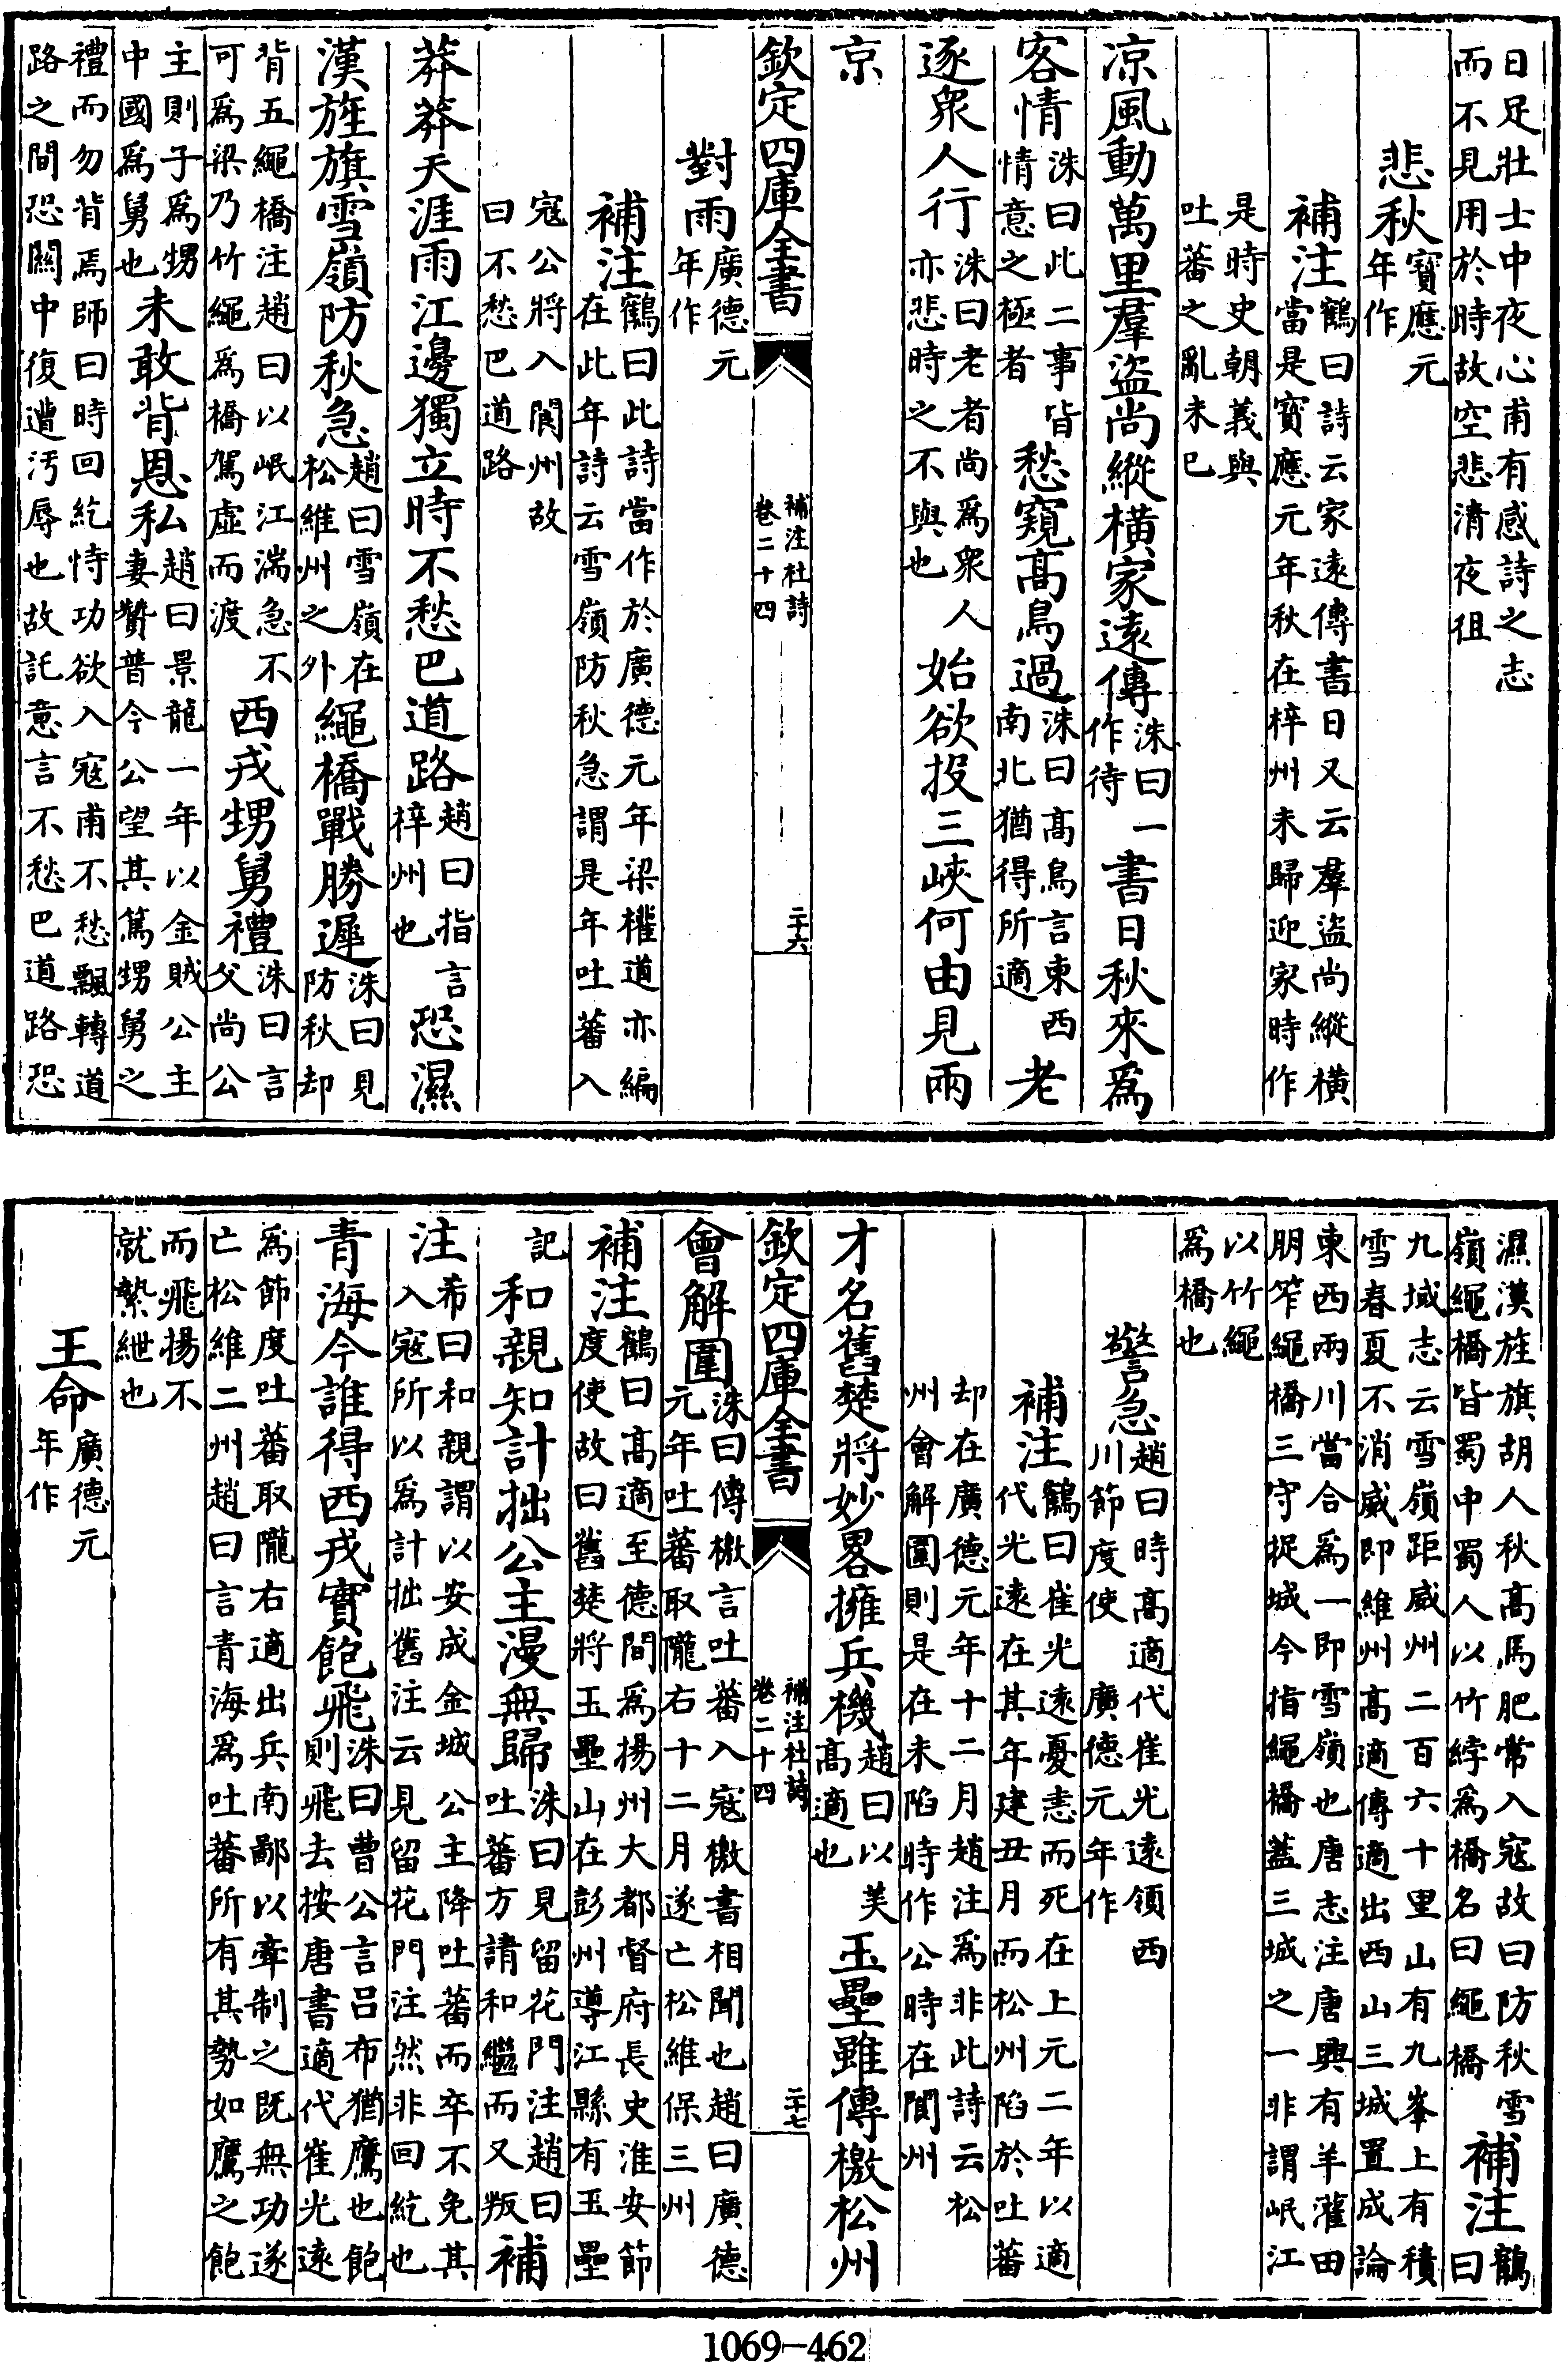 日足壯士中夜心甫有感詩之志
而不見用於時故空悲清夜徂
悲秋寶應元
年作
補注鶴曰詩云家遠傳書日又云羣盜尚縱橫
當是寶應元年秋在梓州未歸迎家時作
是時史朝義與
吐蕃之亂未已
凉風動萬里羣盜尚縱橫家遠傳洙曰一作待書日秋來爲
客情洙曰此二事皆情意之極者愁窺髙鳥過洙曰髙鳥言東西南北猶得所適老
逐衆人行洙曰老者尚爲衆人亦悲時之不與也始欲投三峽何由見兩
京
欽定四庫全書
補注杜詩
卷二十四
二十六
對雨廣德元
年作
補注鶴曰此詩當作於廣德元年梁權道亦編
在此年詩云雪嶺防秋急謂是年吐蕃入
寇公將入閬州故
曰不愁巴道路
莽莽天涯雨江邊獨立時不愁巴道路趙曰指言梓州也恐濕
漢旌旗雪嶺防秋急趙曰雪嶺在松維州之外繩橋戰勝遲洙曰見防秋却
背五繩橋注趙曰以岷江湍急不可爲梁乃竹繩爲橋駕虛而渡西戎甥舅禮洙曰言父尚公
主則子爲甥中國爲舅也未敢背恩私趙曰景龍一年以金賊公主妻贊普今公望其篤甥舅之
禮而勿背焉師曰時回紇恃功欲入寇甫不愁飄轉道
路之間恐關中復遭汚辱也故託意言不愁巴道路恐
濕漢旌旗胡人秋髙馬肥常入寇故曰防秋雪嶺繩橋皆蜀中蜀人以竹綍爲橋名曰繩橋補注鶴曰
九域志云雪嶺距威州二百六十里山有九峯上有積
雪春夏不消威即維州髙適傳適出西山三城置戍論
東西兩川當合爲一即雪嶺也唐志注唐興有羊灌田
朋笮繩橋三守捉城今指繩橋蓋三城之一非謂岷江
以竹繩
爲橋也
警急趙曰時髙適代崔光遠領西
川節度使 廣德元年作
補注鶴曰崔光遠憂恚而死在上元二年以適
代光遠在其年建丑月而松州陷於吐蕃
却在廣德元年十二月趙注爲非此詩云松
州會解圍則是在未陷時作公時在閬州
才名舊楚將妙畧擁兵機趙曰以美髙適也玉壘雖傳檄松州
欽定四庫全書
補注杜詩
卷二十四
二十七
會解圍洙曰傳檄言吐蕃入寇檄書相聞也趙曰廣德
元年吐蕃取隴右十二月遂亡松維保三州
補注鶴曰髙適至德間爲揚州大都督府長史淮安節
度使故曰舊楚將玉壘山在彭州導江縣有玉壘
記和親知計拙公主漫無歸洙曰見留花門注趙曰吐蕃方請和繼而又叛補
注希曰和親謂以安成金城公主降吐蕃而卒不免其
入寇所以爲計拙舊注云見留花門注然非回紇也
青海今誰得西戎實飽飛洙曰曹公言呂布猶鷹也飽則飛去按唐書適代崔光遠
爲節度吐蕃取隴右適出兵南鄙以牽制之既無功遂
亡松維二州趙曰言青海爲吐蕃所有其勢如鷹之飽
而飛揚不
就縶紲也
王命廣德元
年作
1069-462